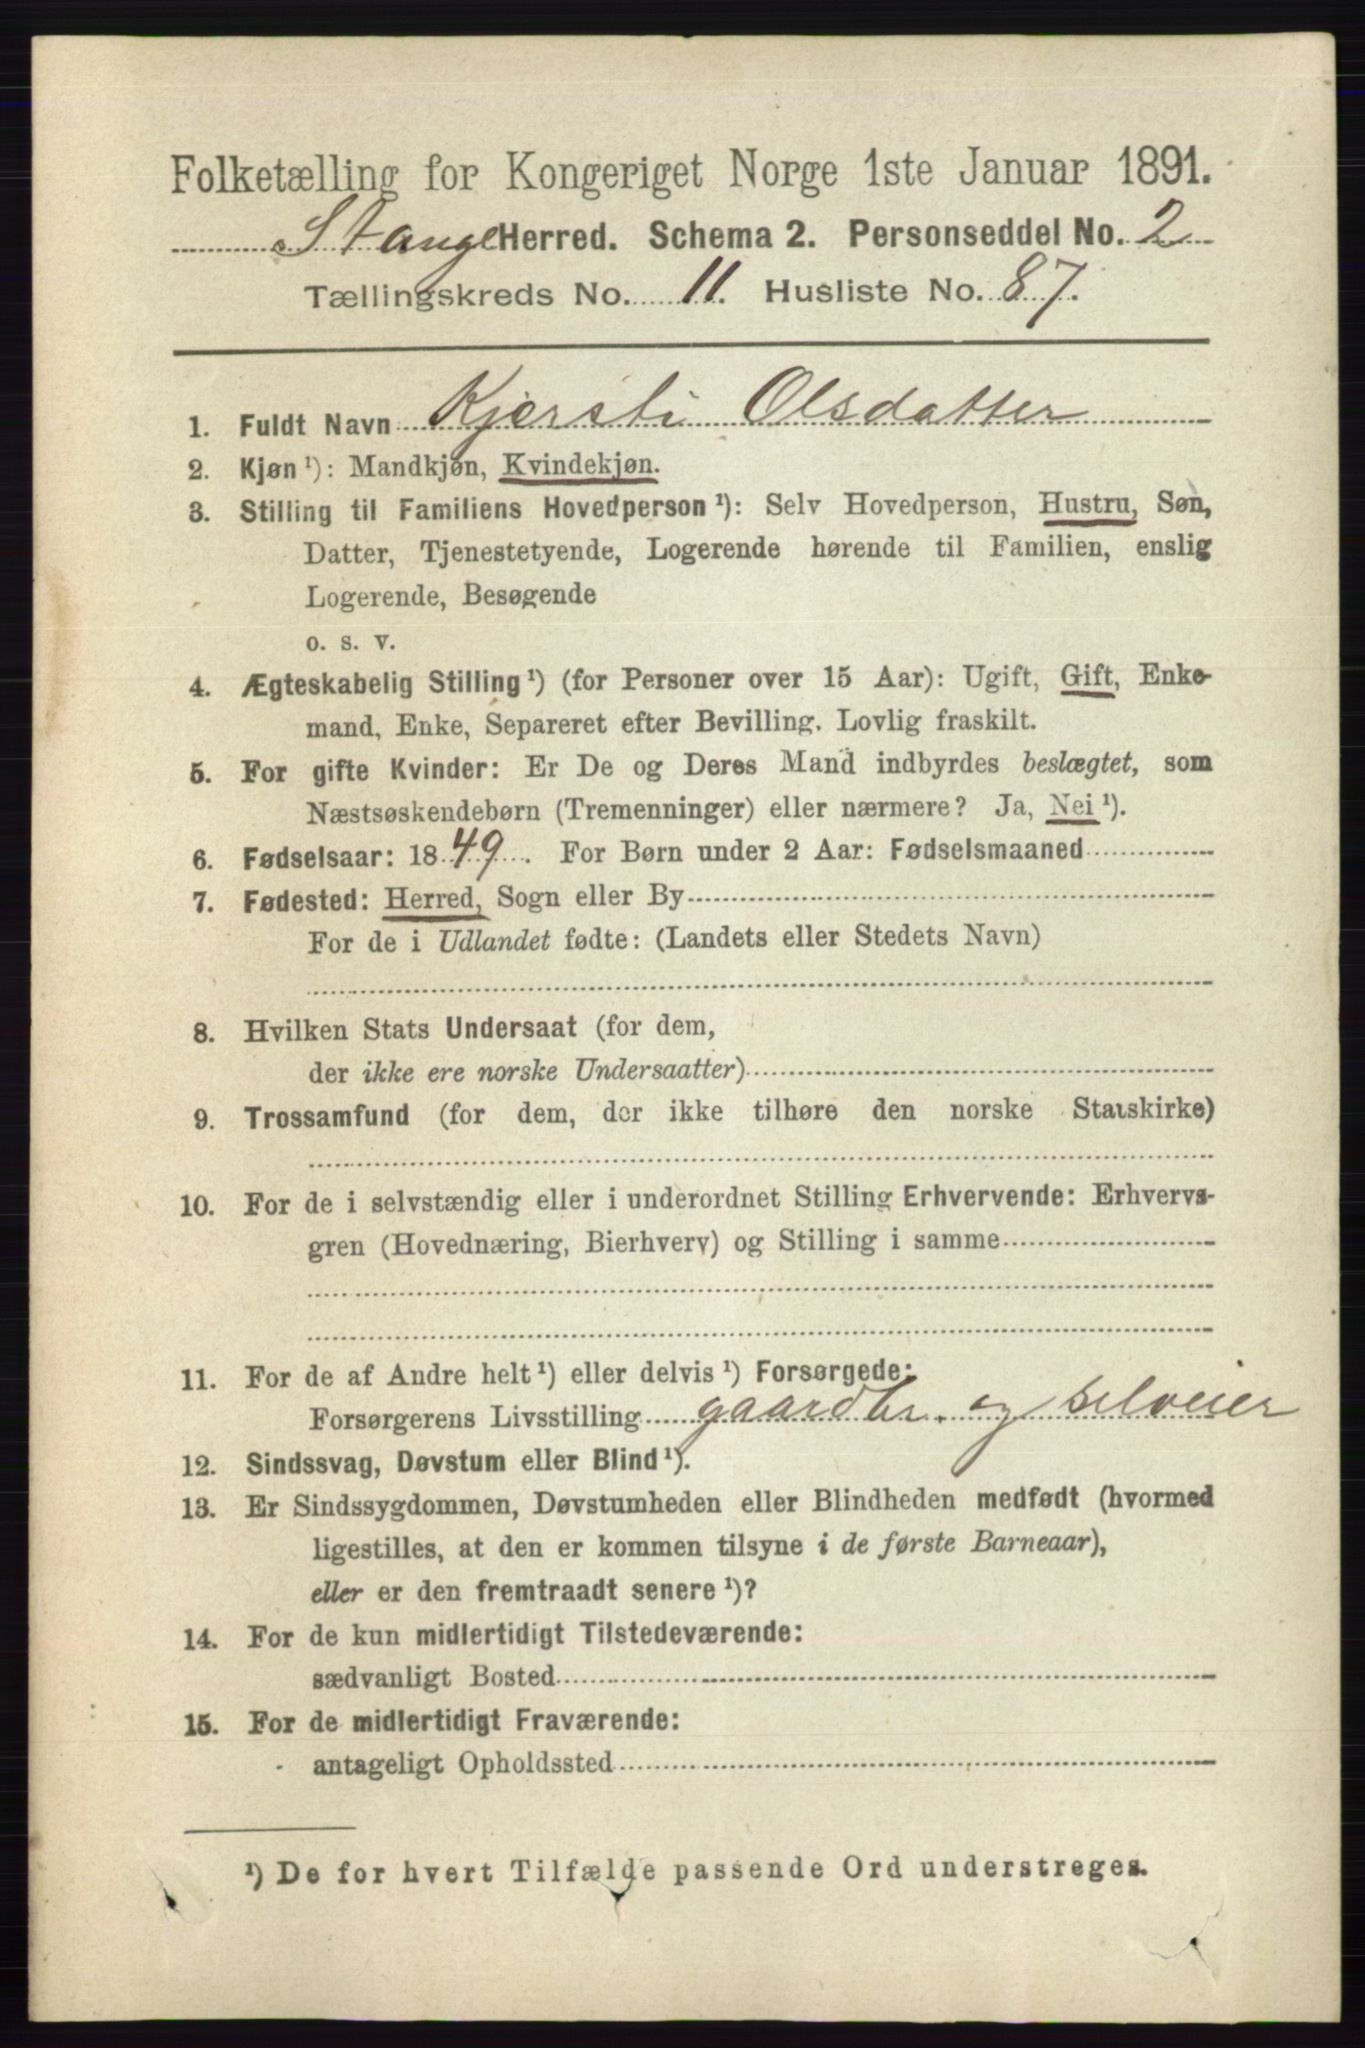 Folketælling for Kongeriget Norge 1ste Januar 1891.
Stange Herred. Schema 2. Personseddel No. 2
Tællingskreds No. 11. Husliste No. 87.
1. Fuldt Navn Kjersti Olsdatter
2. Kjøn ¹): Mandkjøn, Kvindekjøn.
3. Stilling til Familiens Hovedperson ¹): Selv Hovedperson, Hustru, Søn,
Datter, Tjenestetyende, Logerende hørende til Familien, enslig
Logerende, Besøgende
o. s. v.
4. Ægteskabelig Stilling ¹) (for Personer over 15 Aar): Ugift, Gift, Enke-
mand, Enke, Separeret efter Bevilling. Lovlig fraskilt.
5. For gifte Kvinder: Er De og Deres Mand indbyrdes beslægtet, som
Næstsøskendebørn (Tremenninger) eller nærmere? Ja, Nei ¹).
6. Fødselsaar: 1849. For Børn under 2 Aar: Fødselsmaaned
7. Fødested: Herred, Sogn eller By
For de i Udlandet fødte: (Landets eller Stedets Navn)
8. Hvilken Stats Undersaat (for dem,
der ikke ere norske Undersaatter)
9. Trossamfund (for dem, der ikke tilhøre den norske Statskirke)
10. For de i selvstændig eller i underordnet Stilling Erhvervende: Erhvervs-
gren (Hovednæring, Bierhverv) og Stilling i samme
11. For de af Andre helt ¹) eller delvis ¹) Forsørgede:
Forsørgerens Livsstilling gaardbr. og selveier
12. Sindssvag, Døvstum eller Blind ¹).
13. Er Sindssygdommen, Døvstumheden eller Blindheden medfødt (hvormed
ligestilles, at den er kommen tilsyne i de første Barneaar),
eller er den fremtraadt senere ¹)?
14. For de kun midlertidigt Tilstedeværende:
sædvanligt Bosted
15. For de midlertidigt Fraværende:
antageligt Opholdssted
¹) De for hvert Tilfælde passende Ord understreges.